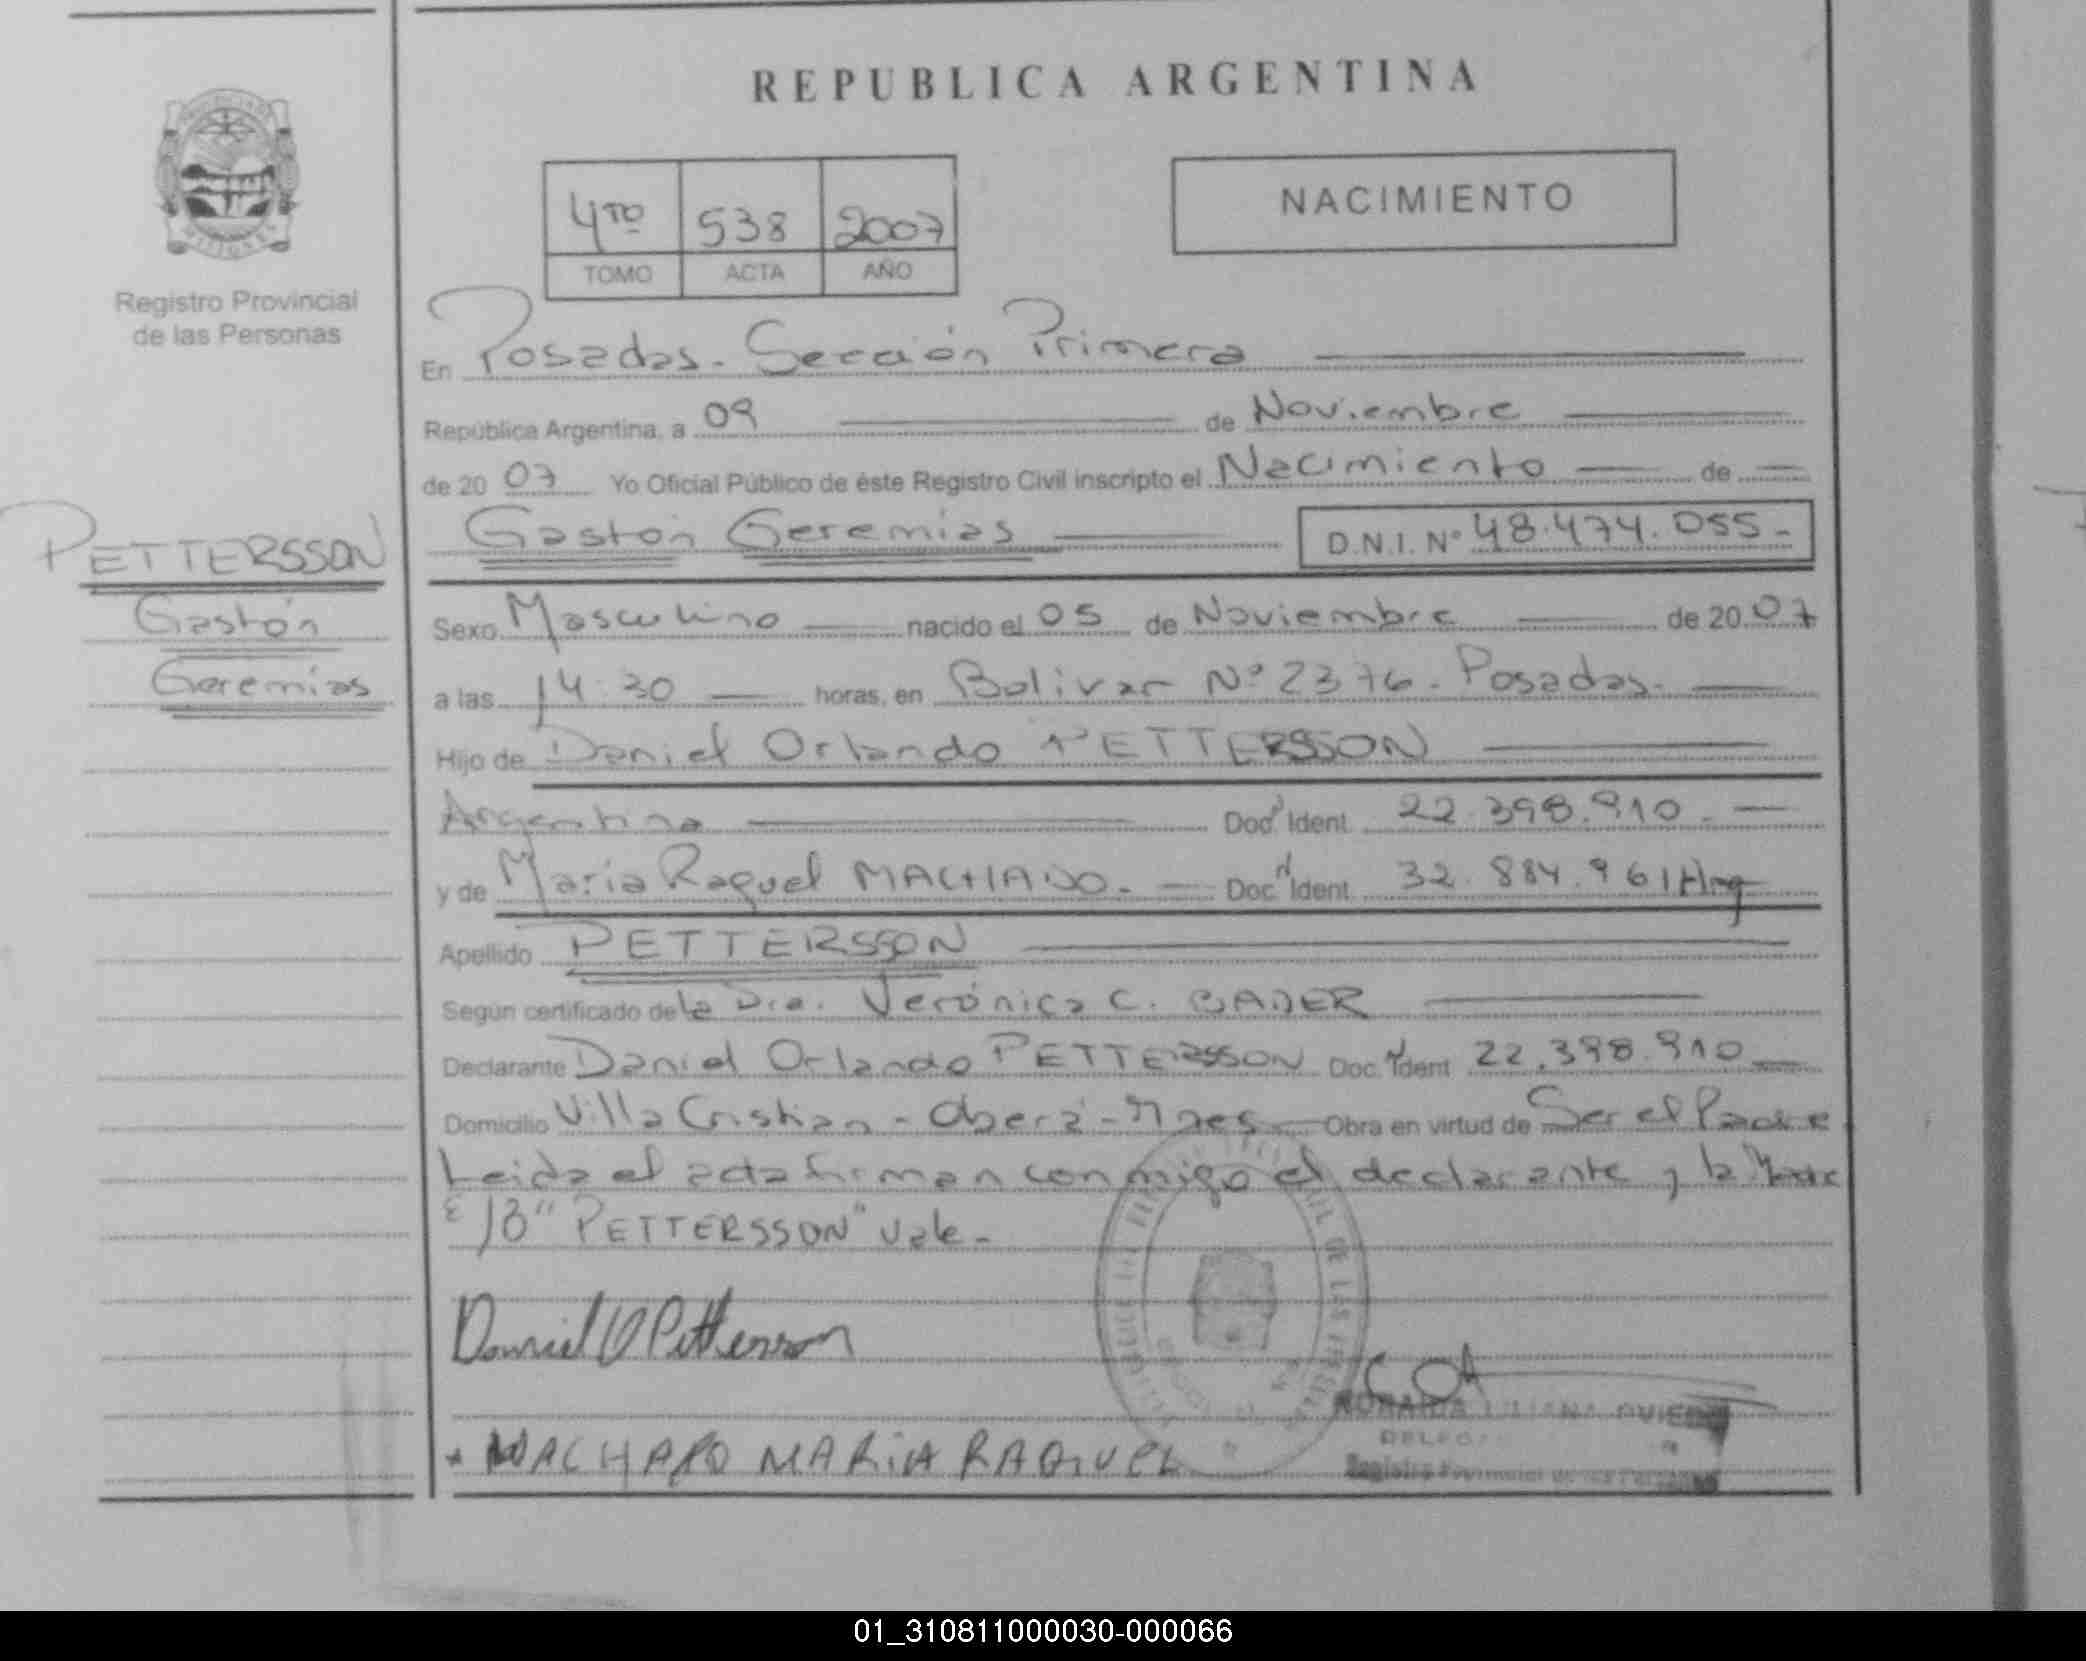 REPUBLICA ARGENTINA
NACIMIENTO
4TO 538 2007
TOMO ACTA AÑO
Registro Provincial
de las Personas
En Posadas. Sección Primera
República Argentina, a 09 de Noviembre
de 2007 Yo Oficial Público de éste Registro Civil inscripto el Nacimiento de
Gastón Geremias D.N.I. Nº 48.474.055-
PETTERSSON
Gastón
Geremias
Sexo Masculino nacido el 05 de Noviembre de 2007
a las 14:30 horas, en Bolivar Nº 2376. Posadas.
Hijo de Daniel Orlando PETTERSSON
Argentina Doc. Ident. 22.398.910.
y de Maria Raquel MACHADO. Doc. Ident. 32.884.961
Apellido PETTERSSON
Según certificado de la Dra. Verónica C. BADER
Declarante Daniel Orlando PETTERSSON Doc. Ident. 22.398.910
Domicilio Villa Cristian - Oberá - Mnes Obra en virtud de Ser el Padre
Leida el acta firman conmigo el declarante y la Madre
"PETTERSSON" Vale-
Daniel O Pettersson
MACHADO MARIA RAQUEL
LILIANA OVIEDO
Registro Provincial de las Personas
01_310811000030-000066